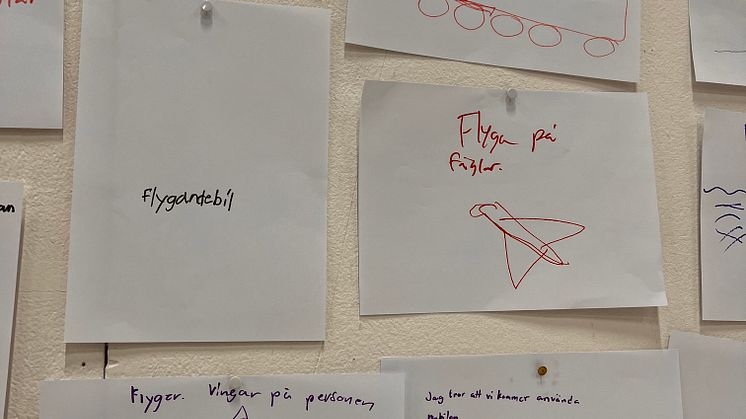 flygandebil
Flyga på
fåglar.
Flyger. Vingar på personen
Jag tror att vi kommer använda
an